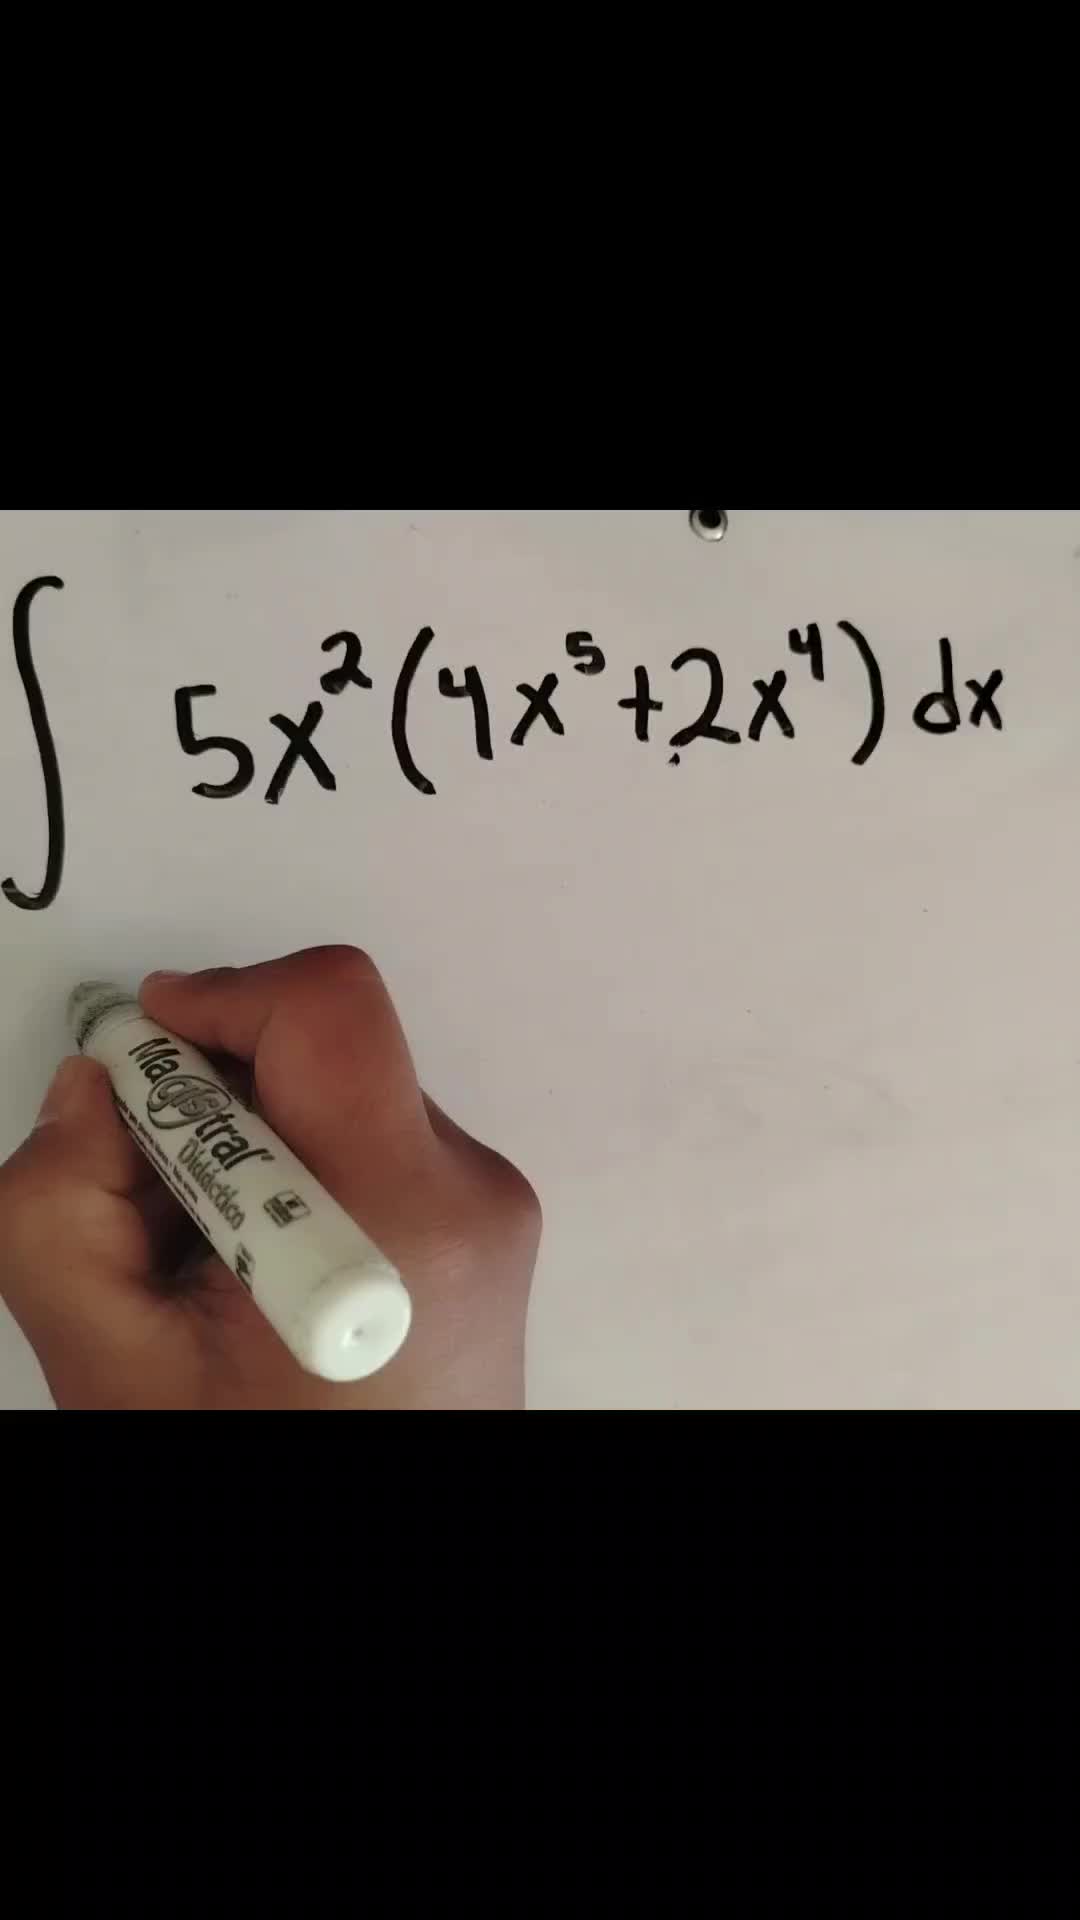 ∫ 5x²(4x⁵+2x⁴)dx
Magistral
Didáctico